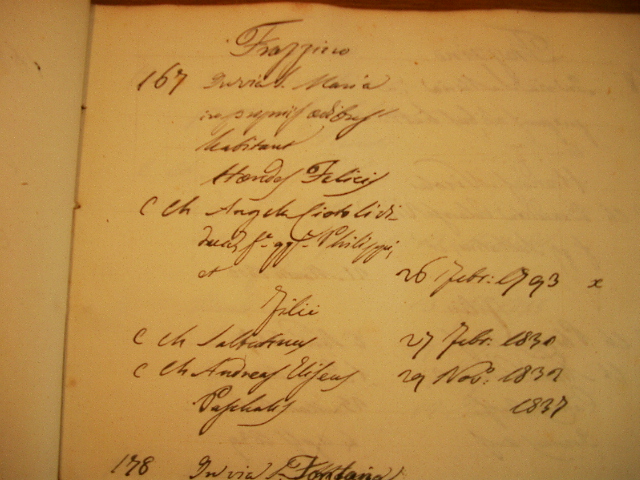 Frazzino
167 In via S. Maria
in propriis ædibus
habitant
Hæredes Felicis
C Ch Angela
f.ª qq.ᵐ Philippi,
et 26 Febr: 1793 x
Filii
C Ch Salvatorus 27 Febr: 1830
C Ch Andreas Eliseus 29 Nov.ˢ 1832
Paschalis 1837
178 In via S. Fontana